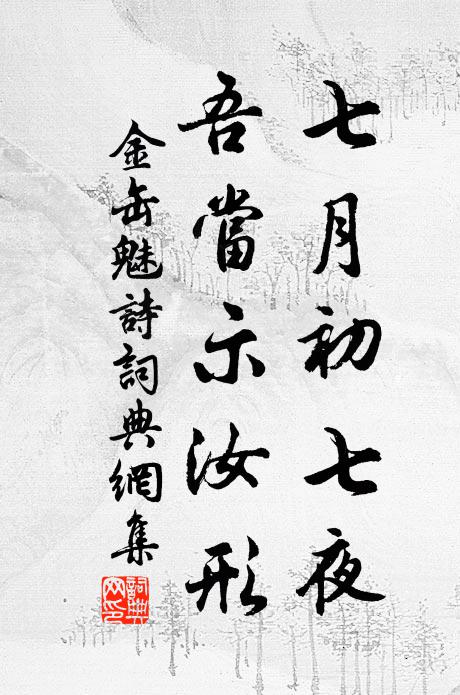 七月初七夜
吾當示汝形
金缶魅詩詞典網集
詞典网印